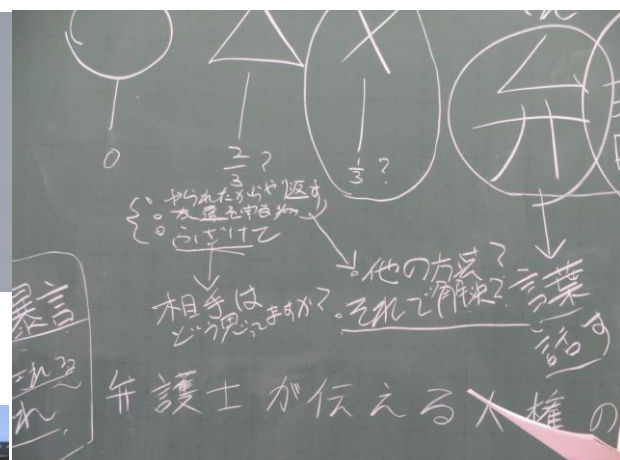 ○ △ × 弁
0 2/3? 1/3?
{・やられたからやり返す
・友達を守るため
・ふざけて
相手は
どう思ってますか?
・他の方法?
・それで解決?
言葉
話す
暴言
弁護士が伝える人権の